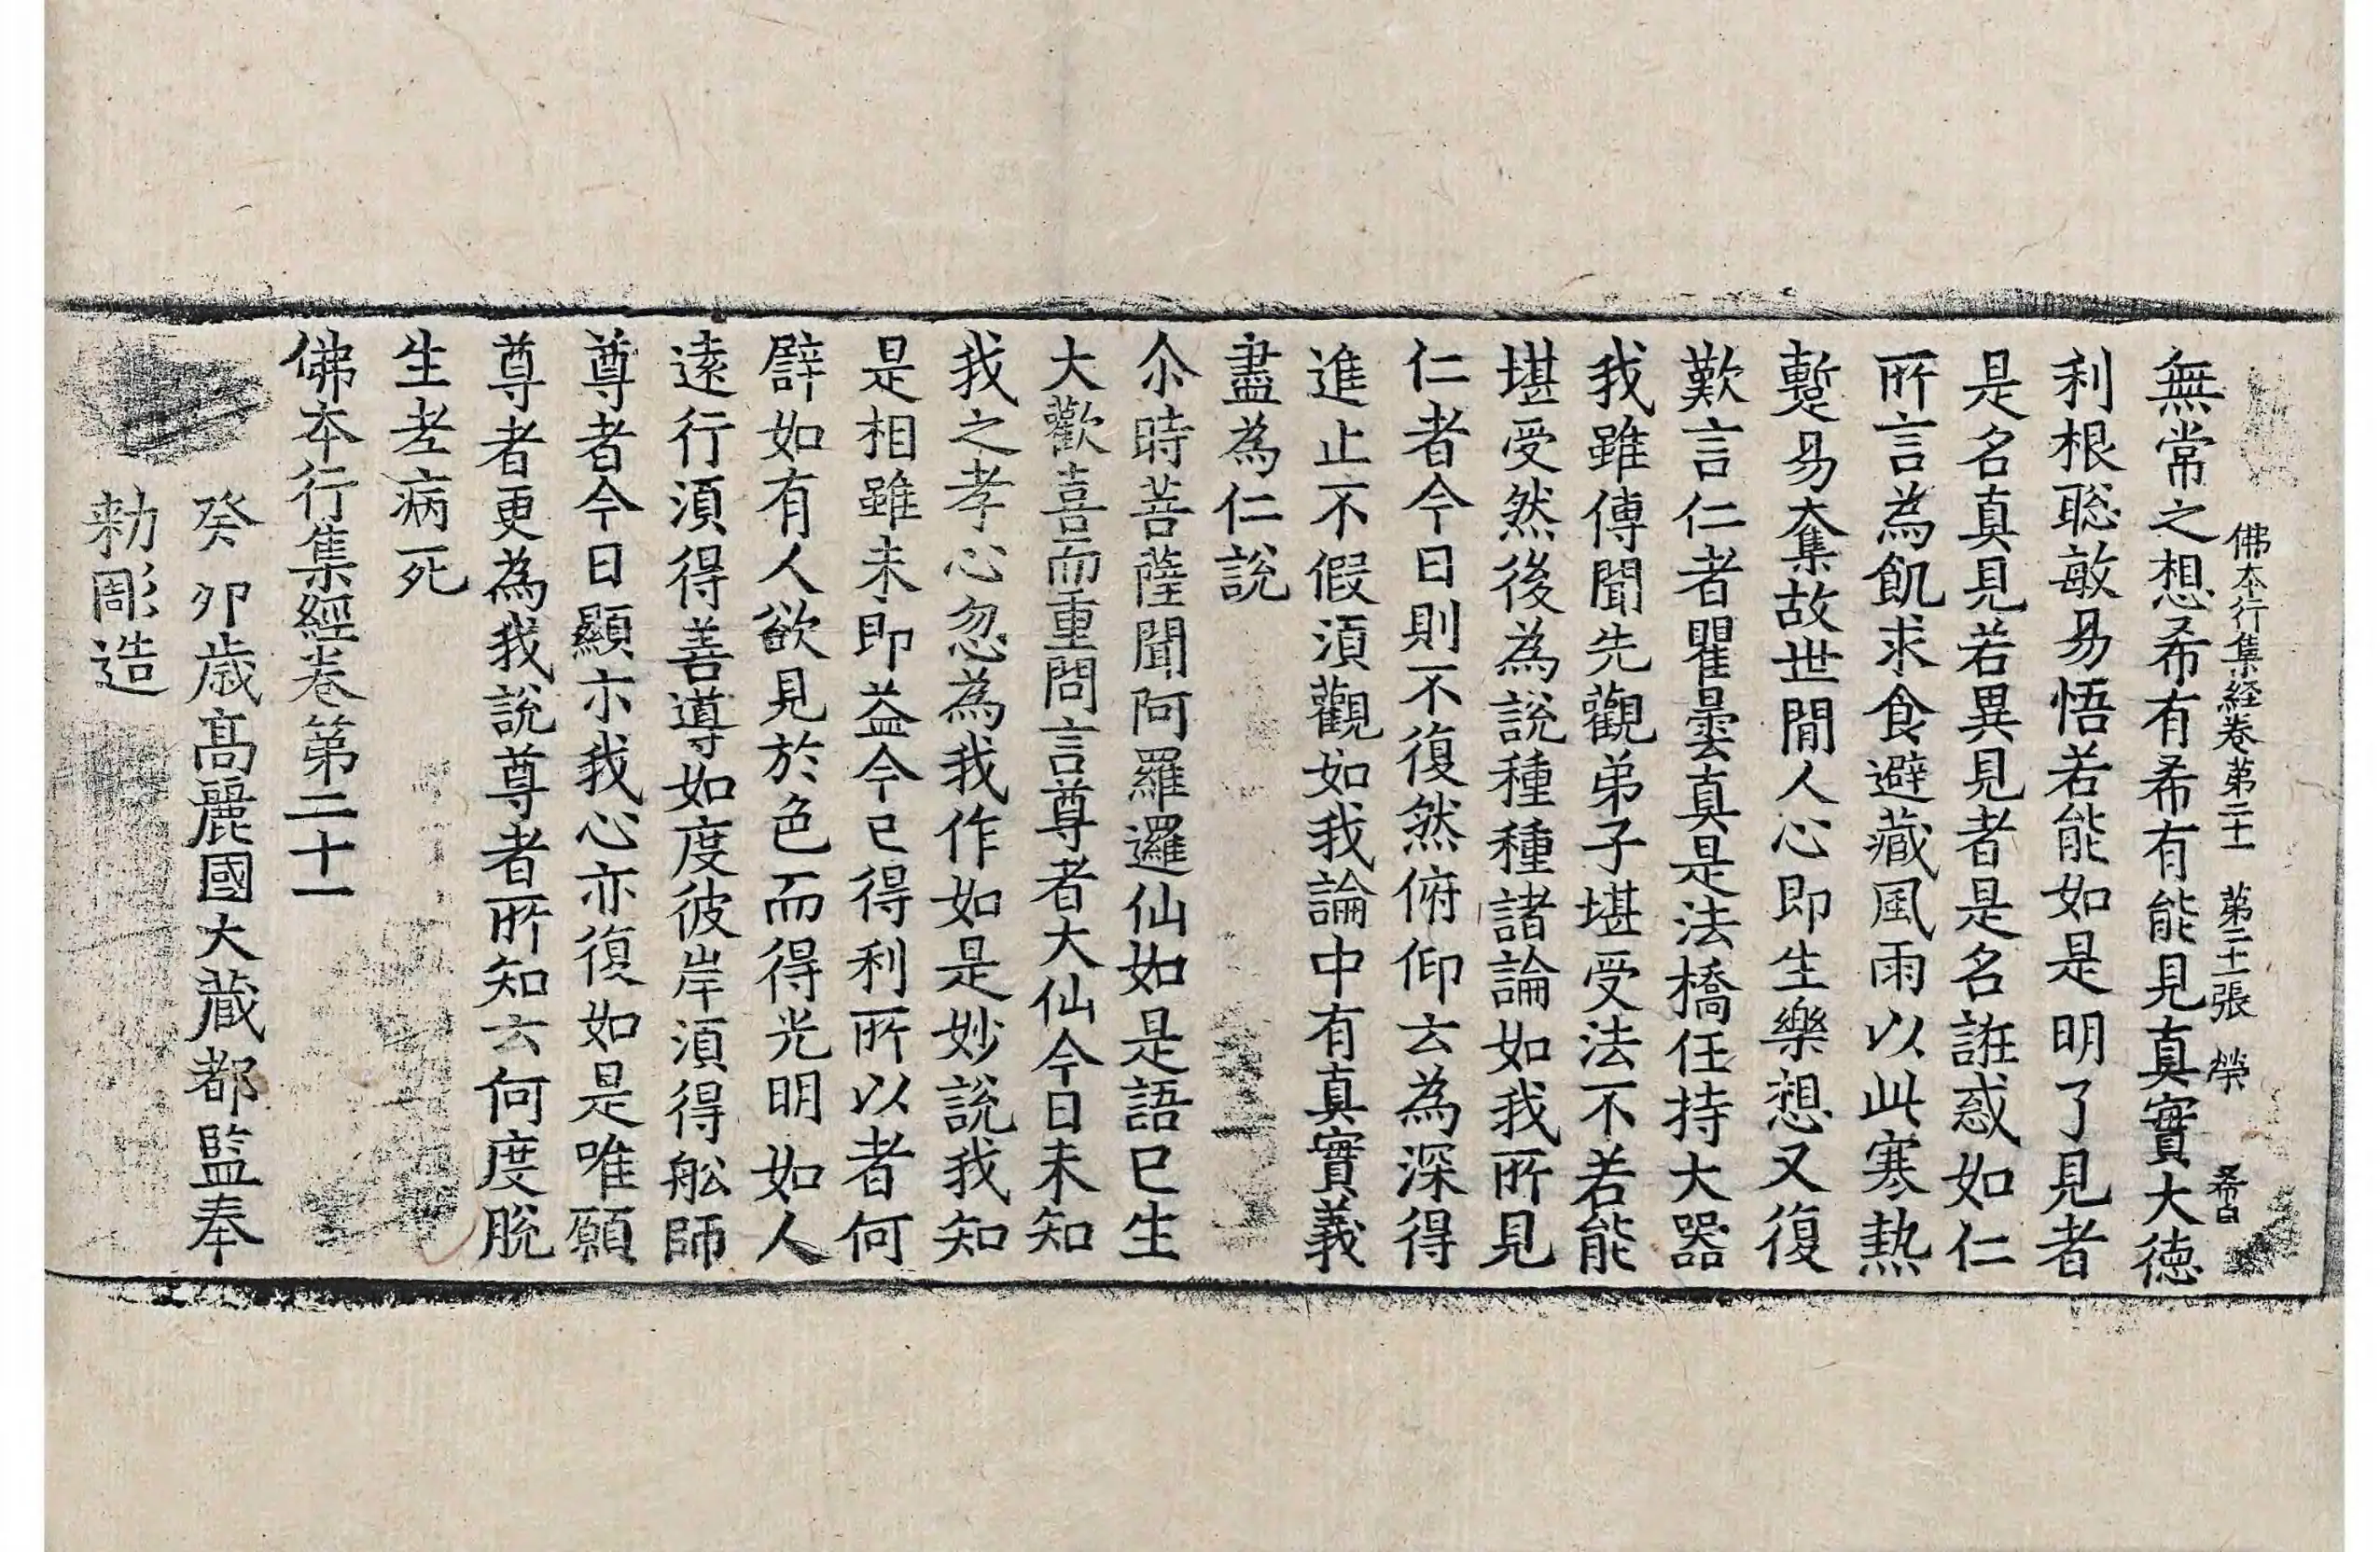 佛本行集経卷第二十一 第二十二張 榮 希白
無常之想希有希有能見真實大徳
利根聡敏易悟若能如是明了見者
是名真見若異見者是名誑惑如仁
所言為飢求食避蔵風雨以此寒熱
蹔易奪故世間人心即生樂想又復
歎言仁者瞿曇真是法橋任持大器
我雖傳聞先觀弟子堪受法不若能
堪受然後為說種種諸論如我所見
仁者今日則不復然俯仰去為深得
進止不假湏觀如我論中有真實義
盡為仁說
尒時菩薩聞阿羅邏仙如是語已生
大歡喜而重問言尊者大仙今日未知
我之孝心忽為我作如是妙說我知
是相雖未即益今已得利所以者何
譬如有人欲見於色而得光明如人
逺行湏得善導如度彼岸湏得舩師
尊者今日顯示我心亦復如是唯願
尊者更為我說尊者所知云何度脫
生老病死
佛本行集經卷第二十一
癸卯歳高麗國大蔵都監奉
勑彫造